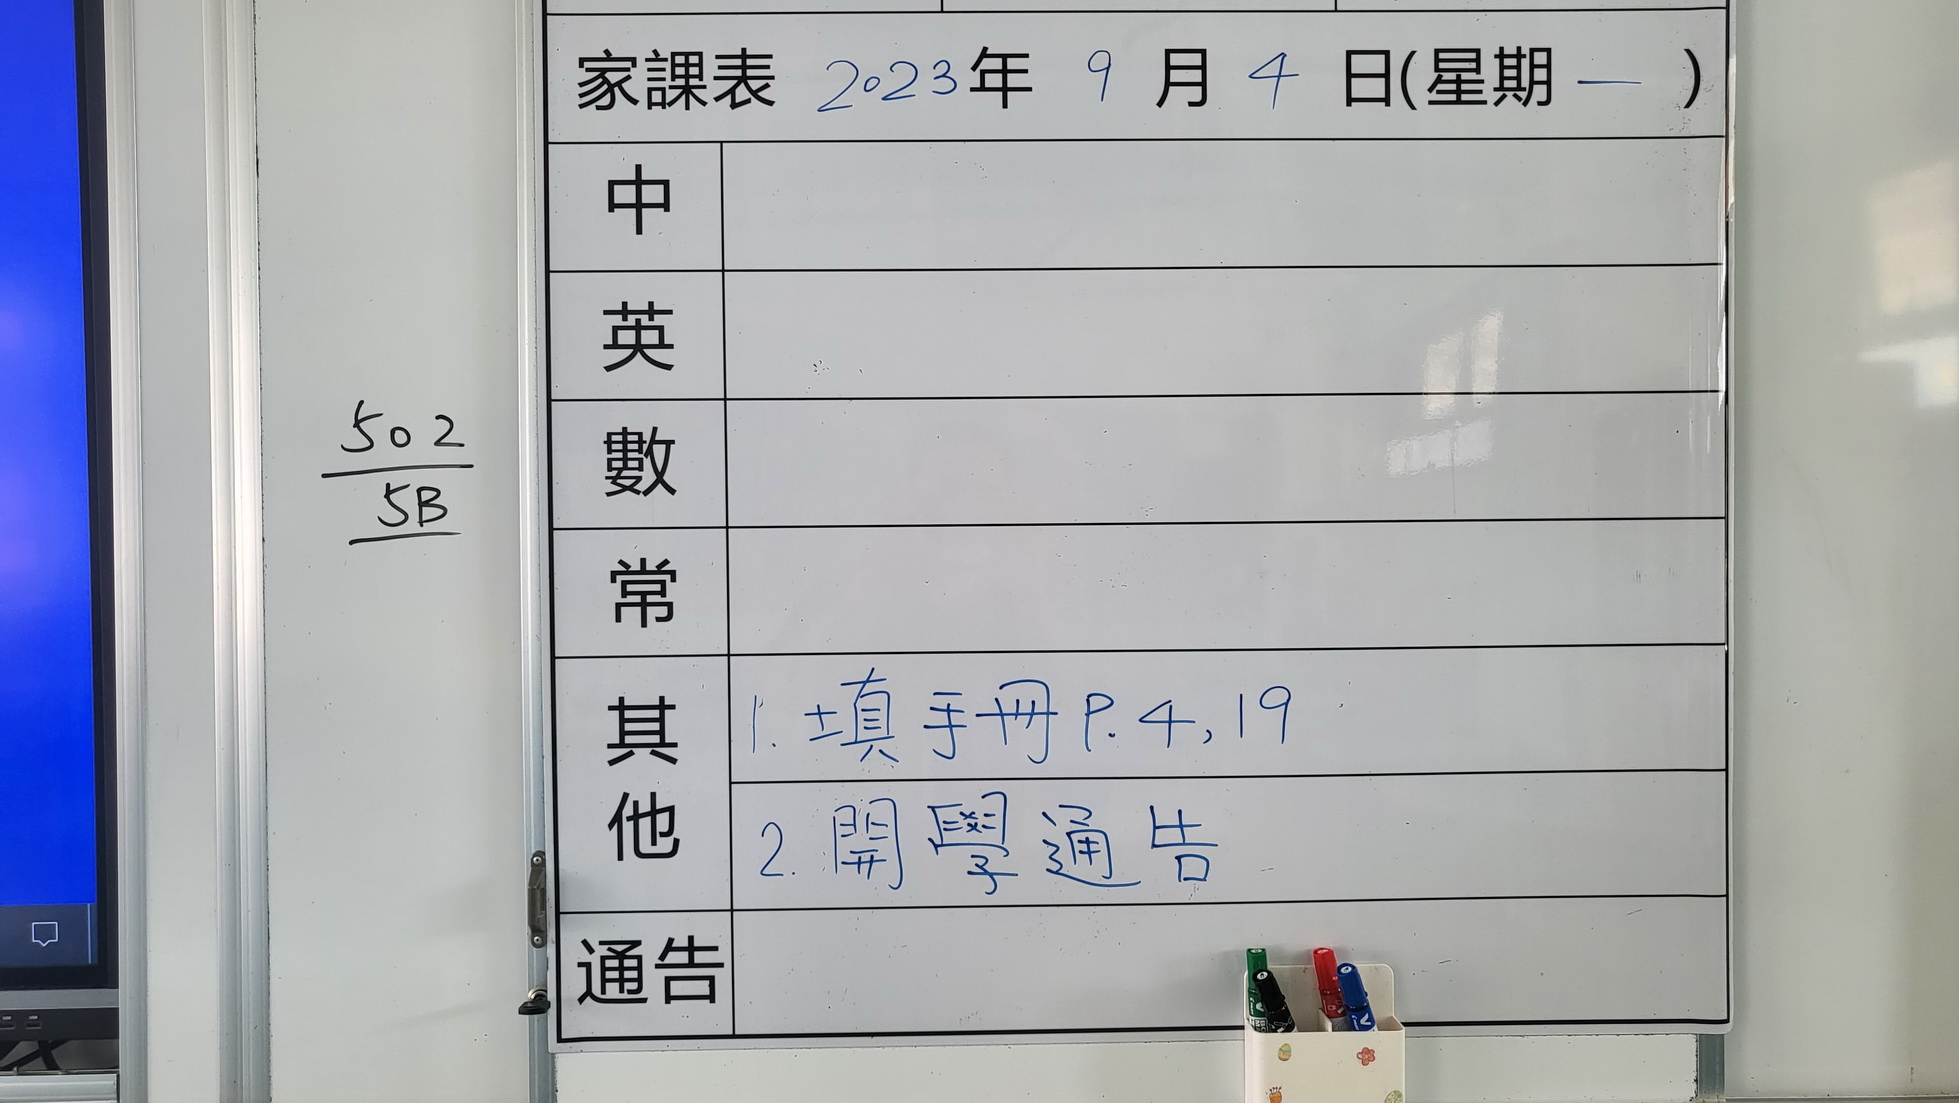 家課表 2023年 9 月 4 日(星期 一 )
中
英
數
常
其他
1. 填手冊 P. 4, 19
2. 開學通告
通告
502
5B